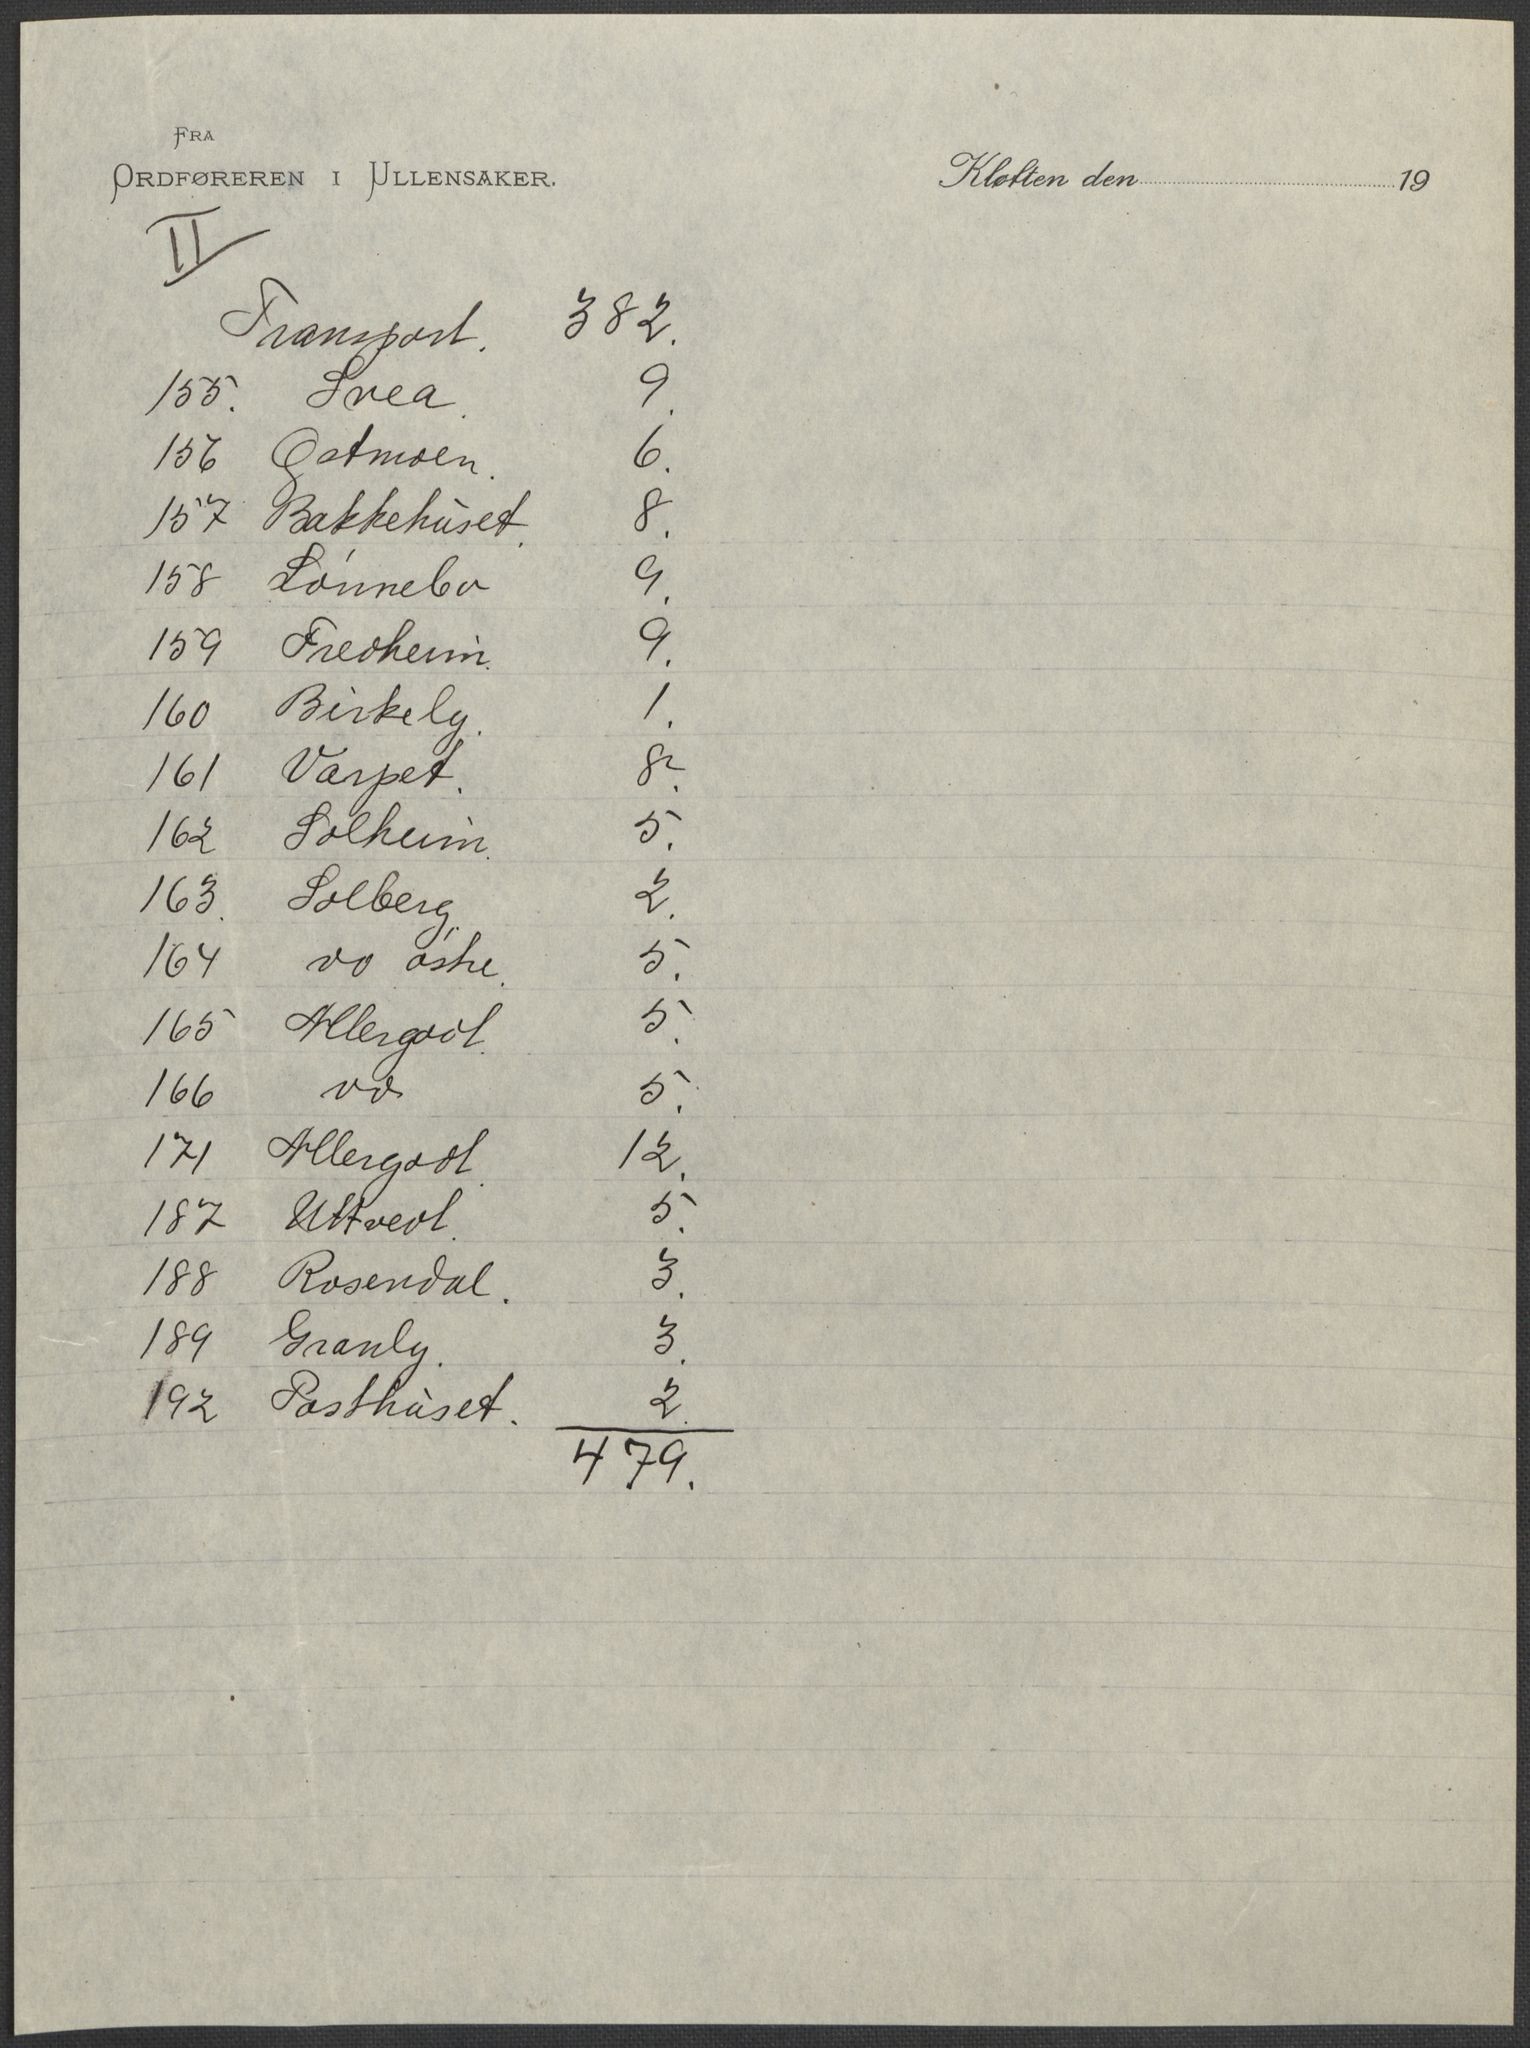 FRA
ORDFØREREN I ULLENSAKER.
Kløften den 19
II
Transport. 382.
155. Svea. 9.
156 Østmoen. 6.
157 Bakkehuset. 8.
158 Lønnebo 9.
159 Fredheim. 9.
160 Birkely. 1.
161 Varpet. 8.
162 Solheim. 5.
163. Solberg. 2.
164 do østre. 5.
165 Allergodt. 5.
166 do 5.
171 Allergodt. 12.
187 Uttvedt. 5.
188 Rosendal. 3.
189 Granly. 3.
192 Posthuset. 2.
479.